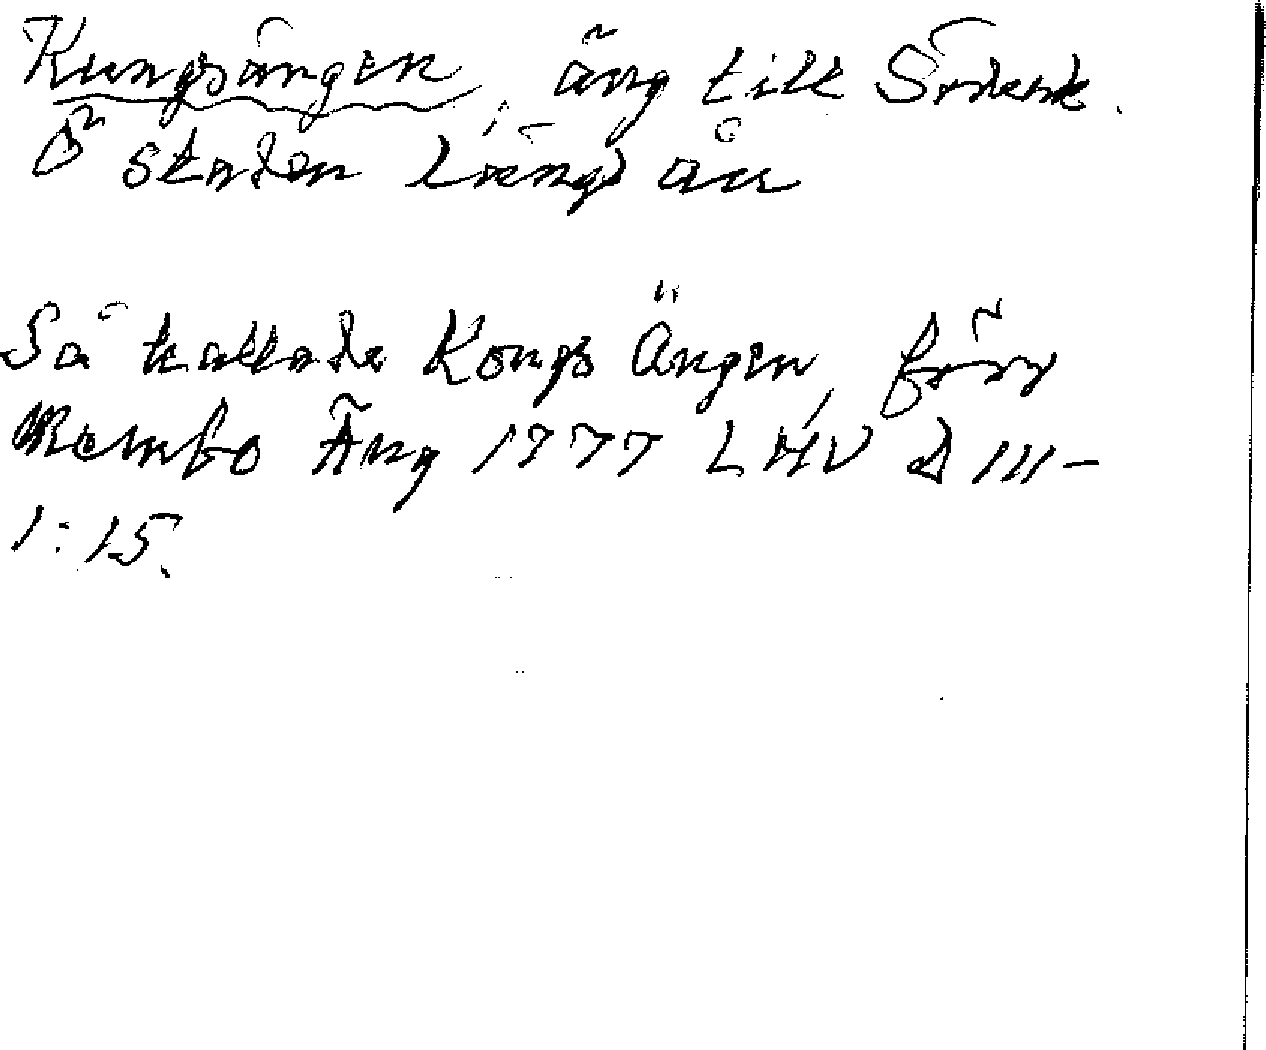 Kungsängen, äng till Söderk.
Ö staden längs ån
Så kallade Kongs Ängen, förr
Rembo Äng 1777 LHV D III-
1:15.